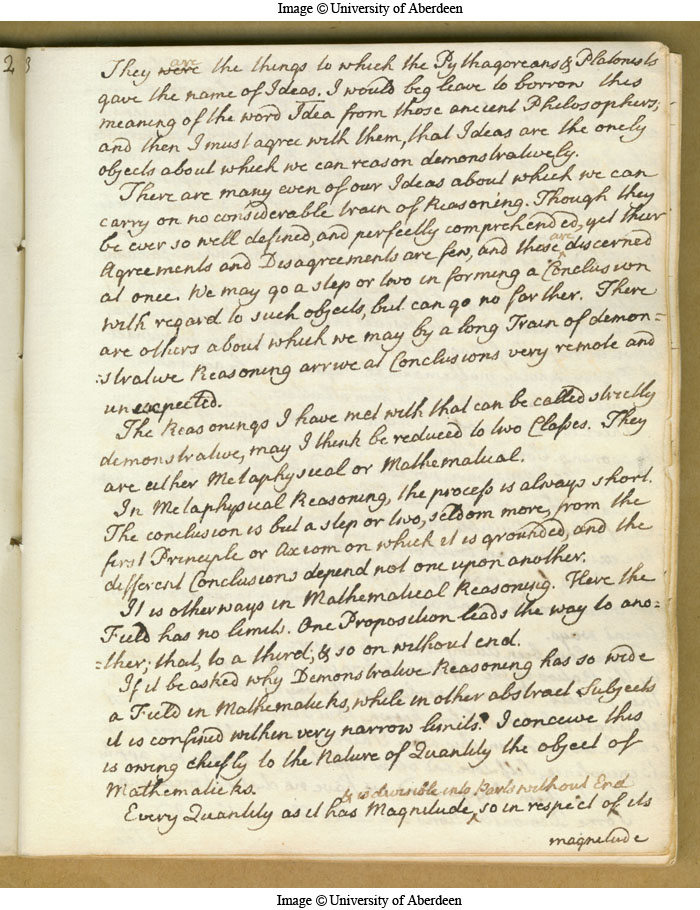 Image © University of Aberdeen
2 3
They were are the things to which the Pythagoreans & Platonists
gave the name of Ideas. I would beg leave to borrow this
meaning of the word Idea from those ancient Philosophers;
and then I must agree with them, that Ideas are the onely
objects about which we can reason demonstratively.
There are many even of our Ideas about which we can
carry on no considerable train of Reasoning. Though they
be ever so well defined, and perfectly comprehended, yet their
Agreements and Disagreements are few, and these are discerned
at once. We may go a step or two in forming a Conclusion
with regard to such objects, but can go no farther. There
are others about which we may by a long Train of demon=
:strative Reasoning arrive at Conclusions very remote and
unexpected.
The Reasonings I have met with that can be called strictly
demonstrative, may I think be reduced to two Classes. They
are either Metaphysical or Mathematical.
In Metaphysical Reasoning, the process is always short.
The conclusion is but a step or two, seldom more, from the
first Principle or Axiom on which it is grounded, and the
different Conclusions depend not one upon another.
It is otherways in Mathematical Reasoning. Here the
Field has no limits. One Proposition leads the way to ano=
=ther; that, to a third; & so on without end.
If it be asked why Demonstrative Reasoning has so wide
a Field in Mathematicks, while in other abstract Subjects
it is confined within very narrow limits? I conceive this
is owing chiefly to the Nature of Quantity the object of
Mathematicks.
& is divisible into Parts without End
Every Quantity as it has Magnitude, so in respect of its
magnitude
Image © University of Aberdeen